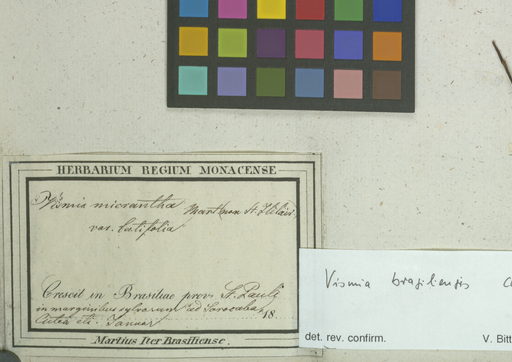 HERBARIUM REGIUM MONACENSE
Vismia micrantha Mart. non St. Hilair.
var. latifolia
Crescit in Brasiliae prov. St. Pauli
in marginibus sylvarum ad Sorocaba,
18.
Martius Iter Brasiliense.
Vismia brasiliensis
det. rev. confirm. V. Bitt